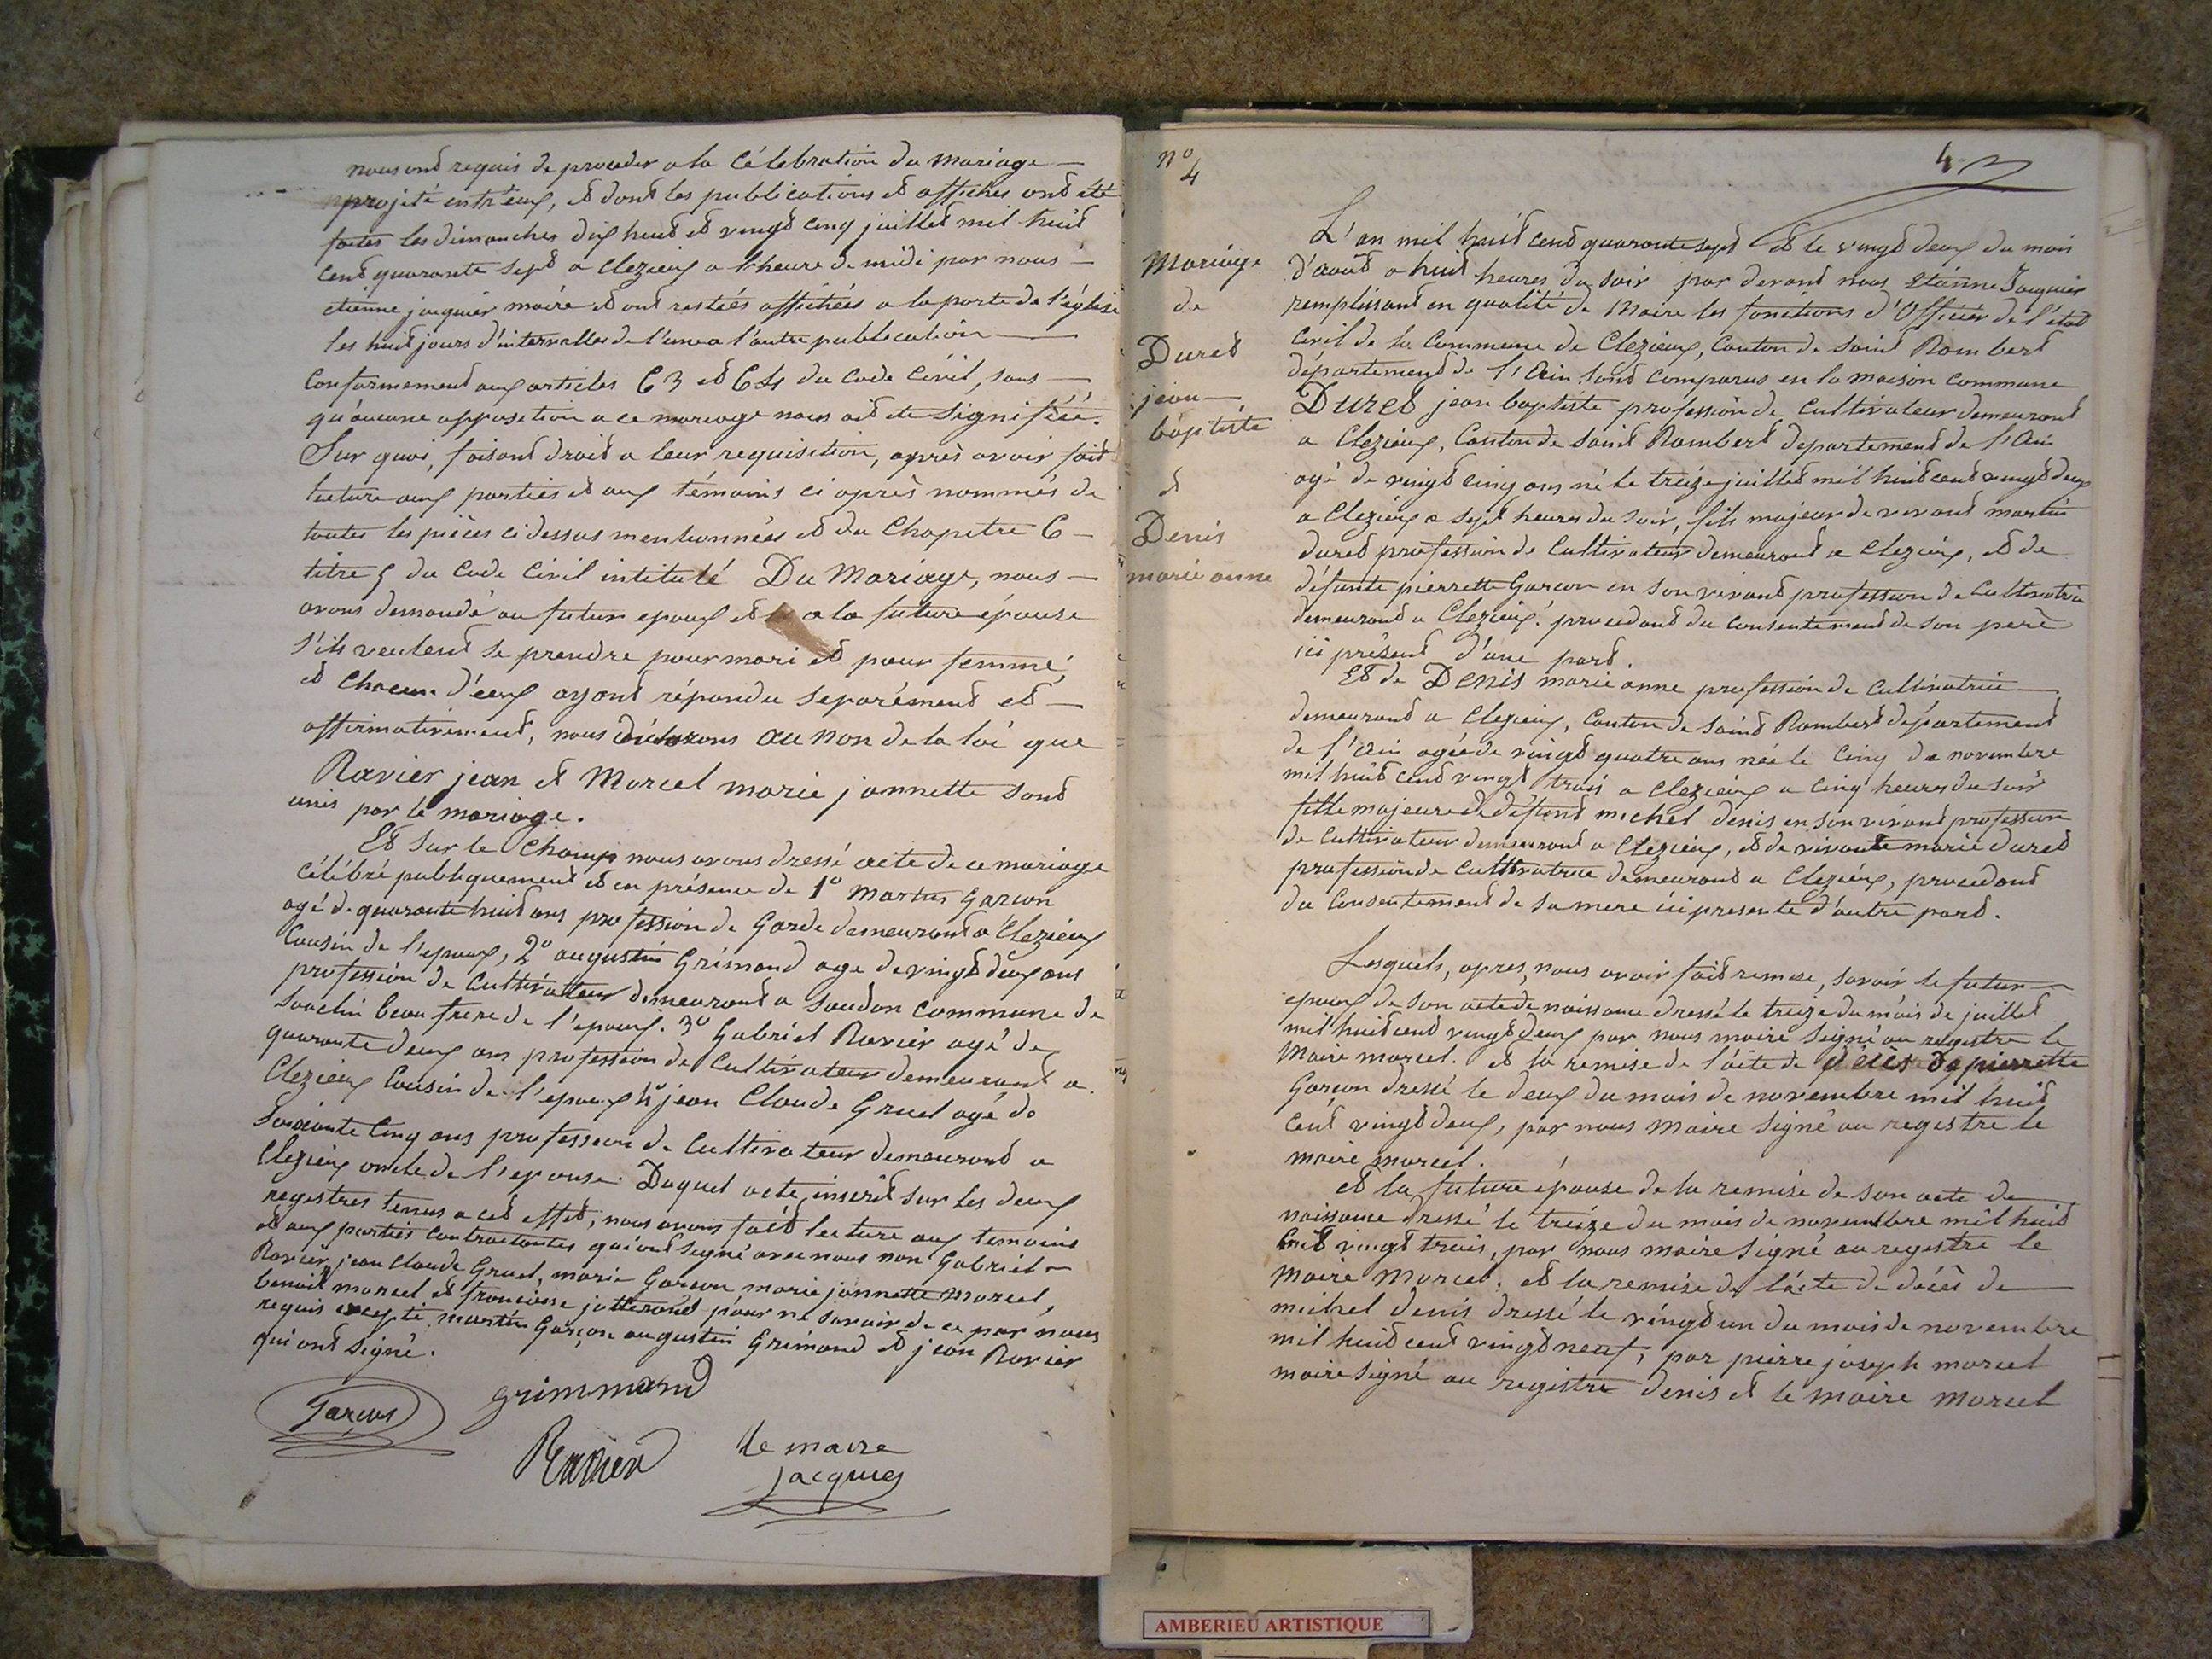 nous ont requis de proceder a la Célebration du mariage —
projeté entr'eux, et dont les publications et affiches ont eté
faites les dimanches dix huit et vingt cinq juillet mil huit
cent quarante sept a Clezieux a l'heure de midi par nous —
etienne jacquier maire et ont restées affichées a la porte de l'église
les huit jours d'intervalles de l'une a l'autre publication —
Conformement aux articles 63 et 64 du Code Civil, sans —
qu'aucune opposition a ce mariage nous ait ete signifiée.
Sur quoi, faisant droit a leur requisition, après avoir fait
lecture aux parties et aux témoins ci après nommés de
toutes les pièces ci dessus mentionnées et du Chapitre 6 —
titre 5 du Code Civil intitulé Du Mariage, nous —
avons demandé au futur epoux et a la future épouse
s'ils veulent se prendre pour mari et pour femme,
et Chacun d'eux ayant répondu separément et —
affirmativement, nous déclarons au non de la loi que
Ravier jean et Morcel marie jannette sont
unis par le mariage.
Et sur le Champ nous avons dressé acte de ce mariage
Célébré publiquement et en présence de 1º Martin Garcon
agé de quarante huit ans profession de Garde demeurant a Clezieux
Cousin de l'epoux, 2º augustin Grimand age de vingt deux ans
profession de Cultivateur demeurant a soudon commune de
souclin beau frere de l'epoux. 3º Gabriel Ravier agé de
quarante deux ans profession de Cultivateur demeurant a
Clezieux Cousin de l'epoux 4º jean Claude Gruel agé de
Soixante Cinq ans profession de Cultivateur demeurant a
Clezieux oncle de l'epouse. Duquel acte, inserit sur les deux
registres tenus a cet effet, nous avons fait lecture aux temoins
et aux parties Contractantes qui ont signé avec nous non Gabriel —
Ravier, jean Claude Gruel, marie Garcon marie jannette morcel,
benoit morcel et francoise jutterand pour ne savoir de ce par nous
requis excepté martin Garçon augustin Grimand et jean Ravier
qui ont signé.
Garçon
grimmand
Ravier
le maire
jacquier
nº
4
4
Mariage
de
Duret
jean —
baptiste
et
Denis
marie anne
L'an mil huit cent quarante sept et le vingt deux du mois
d'août a huit heures du soir par devant nous Etienne Jacquier
remplissant en qualité de Maire les fonctions d'Officier de l'état
Civil de la Commune de Clezieux, Canton de saint Rambert
département de l'Ain sont comparus en la maison commune
Duret jean baptiste profession de Cultivateur demeurant
a Clezieux, Canton de saint Rambert departement de l'Ain
agé de vingt cinq ans né le treize juillet mil huit cent vingt deux
a Clezieux a sept heures du soir, fils majeur de vivant martin
duret profession de Cultivateur demeurant a Clezieux, et de
défunte pierrette Garcon en son vivant profession de Cultivatrice
demeurant a Clezieux. procedant du Consentement de son perè
ici présent d'une part.
Et de Denis marie anne profession de Cultivatrice —
demeurant a Clezieux, Canton de saint Rambert département
de l'ain agée de vingt quatre ans née le Cinq de novembre
mil huit cent vingt trois a Clezieux a Cinq heures du soir
fille majeure de défunt michel denis en son vivant profession
de Cultivateur demeurant a Clezieux, et de vivante marie duret
profession de Cultivatrice demeurant a Clezieux, procedant
du Consentement de sa mere ici presente d'autre part.
Lesquels, apres, nous avoir fait remise, savoir le futur —
epoux de son acte de naissance dressé le treize du mois de juillet
mil huit cent vingt deux par nous maire signé au registre le
Maire morcel. et la remise de l'acte de décès de pierrette
Garçon dressé le deux du mois de novembre mil huit
Cent vingt deux, par nous maire signé au registre le
maire morcel.
et la future épouse de la remise de son acte de
naissance dressé le treize du mois de novembre mil huit
Cent vingt trois, par nous maire signé au registre le
maire Morcel. et la remise de l'acte de décès de —
michel denis dressé le vingt un du mois de novembre
mil huit cent vingt neuf, par pierre joseph morcel
maire signé au registre denis et le maire morcel
AMBERIEU ARTISTIQUE